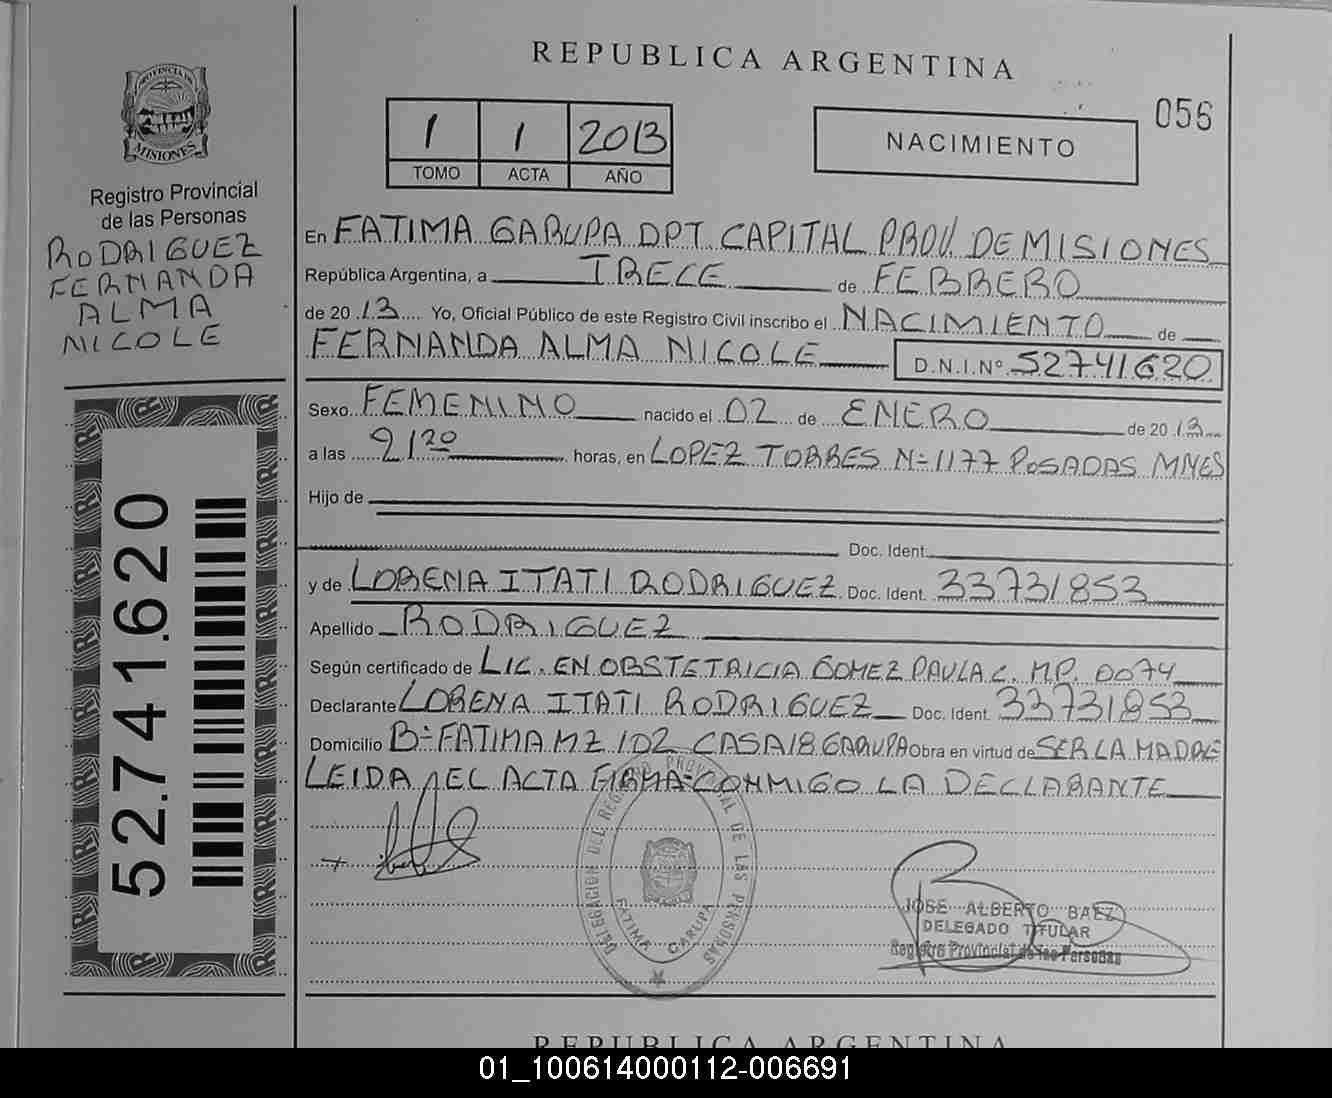 REPUBLICA ARGENTINA
056
1 1 2013
TOMO ACTA AÑO
NACIMIENTO
PROVINCIA DE
MISIONES
Registro Provincial
de las Personas
RODRIGUEZ
FERNANDA
ALMA
NICOLE
52.741.620
En FATIMA GARUPA DPT. CAPITAL PROV. DE MISIONES
República Argentina, a TRECE de FEBRERO
de 20 13 Yo, Oficial Público de este Registro Civil inscribo el NACIMIENTO de
FERNANDA ALMA NICOLE D.N.I.Nº 52741620
Sexo FEMENINO nacido el 02 de ENERO de 20 13
a las 21 20 horas, en LOPEZ TORRES Nº 1177 POSADAS MNES
Hijo de
Doc. Ident.
y de LORENA ITATI RODRIGUEZ Doc. Ident. 33731853
Apellido RODRIGUEZ
Según certificado de LIC. EN OBSTETRICIA GOMEZ PAULA C. MP. 0074
Declarante LORENA ITATI RODRIGUEZ Doc. Ident. 33731853
Domicilio Bº FATIMA MZ 102 CASA 18 GARUPA Obra en virtud de SER LA MADRE
LEIDA EL ACTA FIRMA CONMIGO LA DECLARANTE
DELEGACION DEL REGISTRO PROVINCIAL DE LAS PERSONAS
FATIMA GARUPA
JOSE ALBERTO BAEZ
DELEGADO TITULAR
Registro Provincial de las Personas
REPUBLICA ARGENTINA
01_100614000112-006691